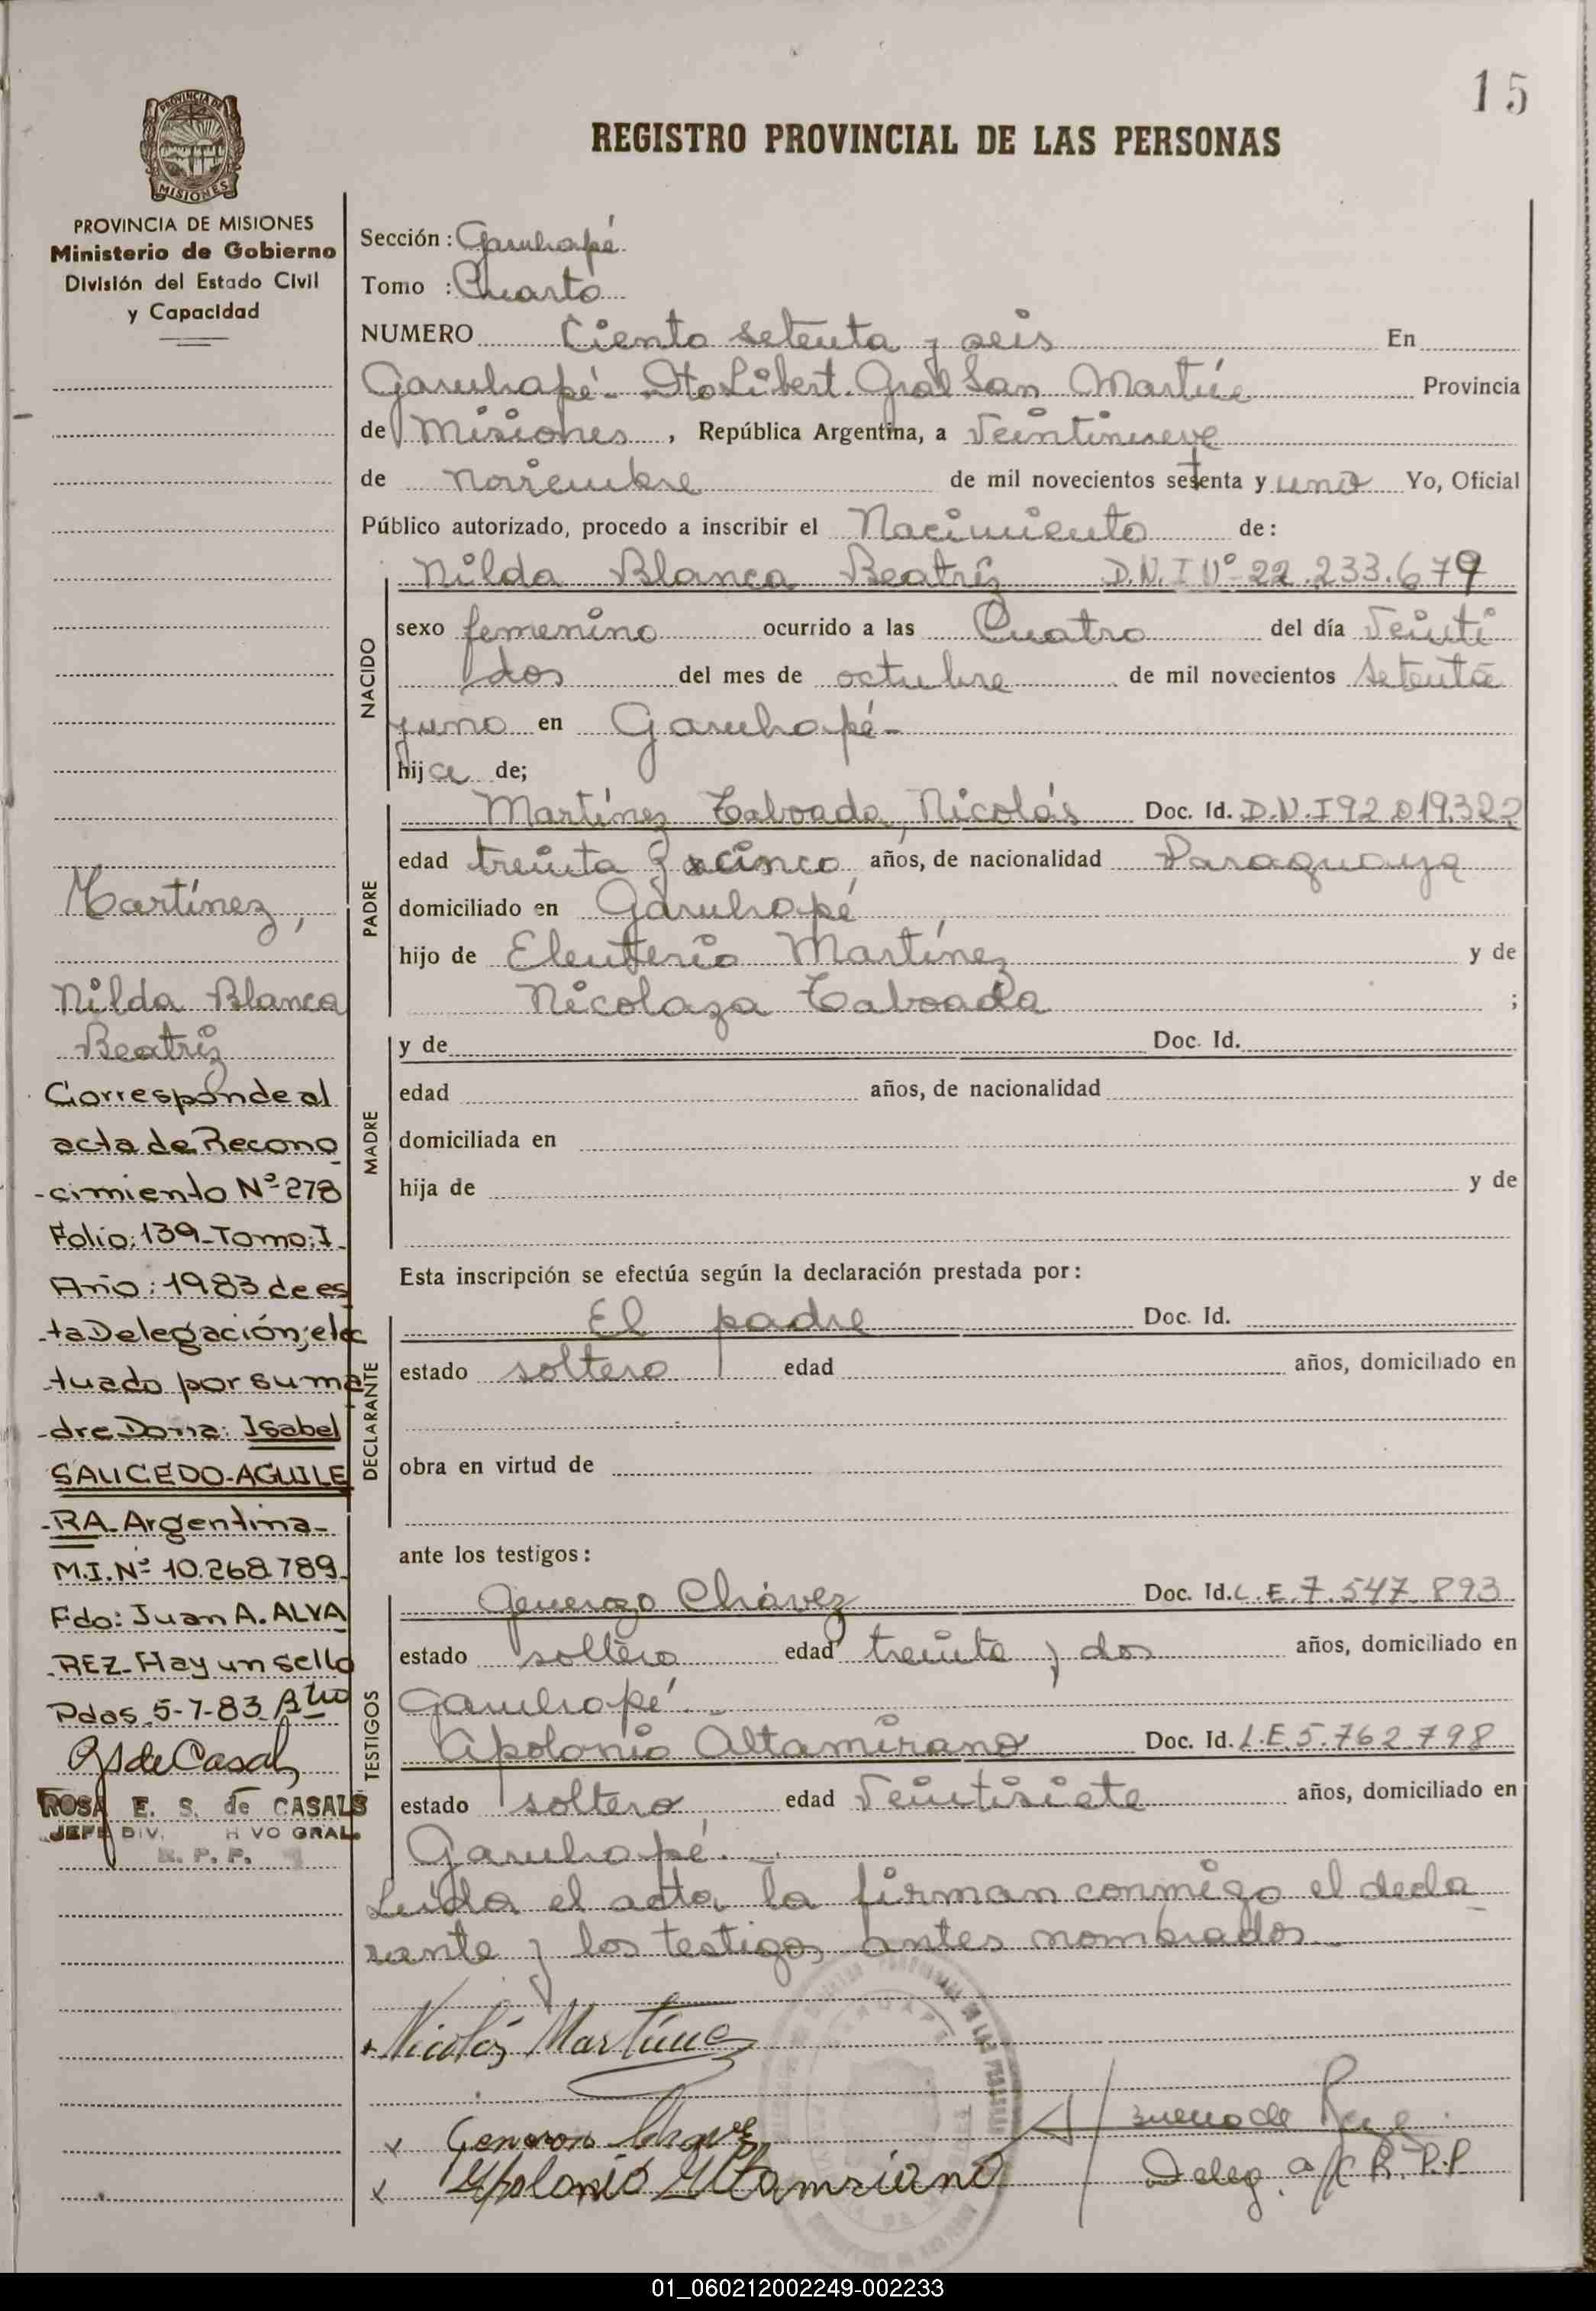 15
PROVINCIA DE
MISIONES
REGISTRO PROVINCIAL DE LAS PERSONAS
PROVINCIA DE MISIONES
Ministerio de Gobierno
División del Estado Civil
y Capacidad
Martínez,
Nilda Blanca
Beatríz
Corresponde al
acta de Recono
-cimiento Nº 278
Folio: 139-Tomo: I
Año: 1983 de es
-ta Delegación; efec
tuado por su ma
-dre Doña: Isabel
SAUCEDO-AGUILE
-RA-Argentina-
M.I.Nº 10.268.789.
Fdo: Juan A. ALVA
REZ-Hay un sello
Pdas. 5-7-83
ROSA E. S. de CASALS
JEFE DIV. H VO GRAL.
R. P. P.
Sección: Garuhapé
Tomo : Cuarto
NUMERO Ciento setenta y seis En
Garuhapé- Dto Libert. Gral San Martín Provincia
de Misiones, República Argentina, a Veintinueve
de noviembre de mil novecientos setenta y uno Yo, Oficial
Público autorizado, procedo a inscribir el Nacimiento de:
NACIDO
Nilda Blanca Beatríz D.N.I Nº 22.233.679
sexo femenino ocurrido a las Cuatro del día Veinti
dos del mes de octubre de mil novecientos setenta
y uno en Garuhapé-
hija de;
PADRE
Martínez Taboada, Nicolás Doc. Id. D.N.I 92.019.322
edad treinta y cinco años, de nacionalidad Paraguaya
domiciliado en Garuhapé
hijo de Eleuterio Martínez y de
Nicolaza Taboada ;
MADRE
y de Doc. Id.
edad años, de nacionalidad
domiciliada en
hija de y de
Esta inscripción se efectúa según la declaración prestada por:
DECLARANTE
El padre Doc. Id.
estado soltero edad años, domiciliado en
obra en virtud de
ante los testigos:
TESTIGOS
Generozo Chávez Doc. Id. L.E. 7.547.893
estado soltero edad treinta y dos años, domiciliado en
Garuhapé.
Apolonio Altamirano Doc. Id. L.E. 5.762.798
estado soltero edad Veintisiete años, domiciliado en
Garuhapé.
Leída el acta la firman conmigo el decla
rante y los testigos antes nombrados
Nicolás Martínez
x Generoso Chavez
x Apolonio Altamirano
Deleg. a/c R.P.P
01_060212002249-002233